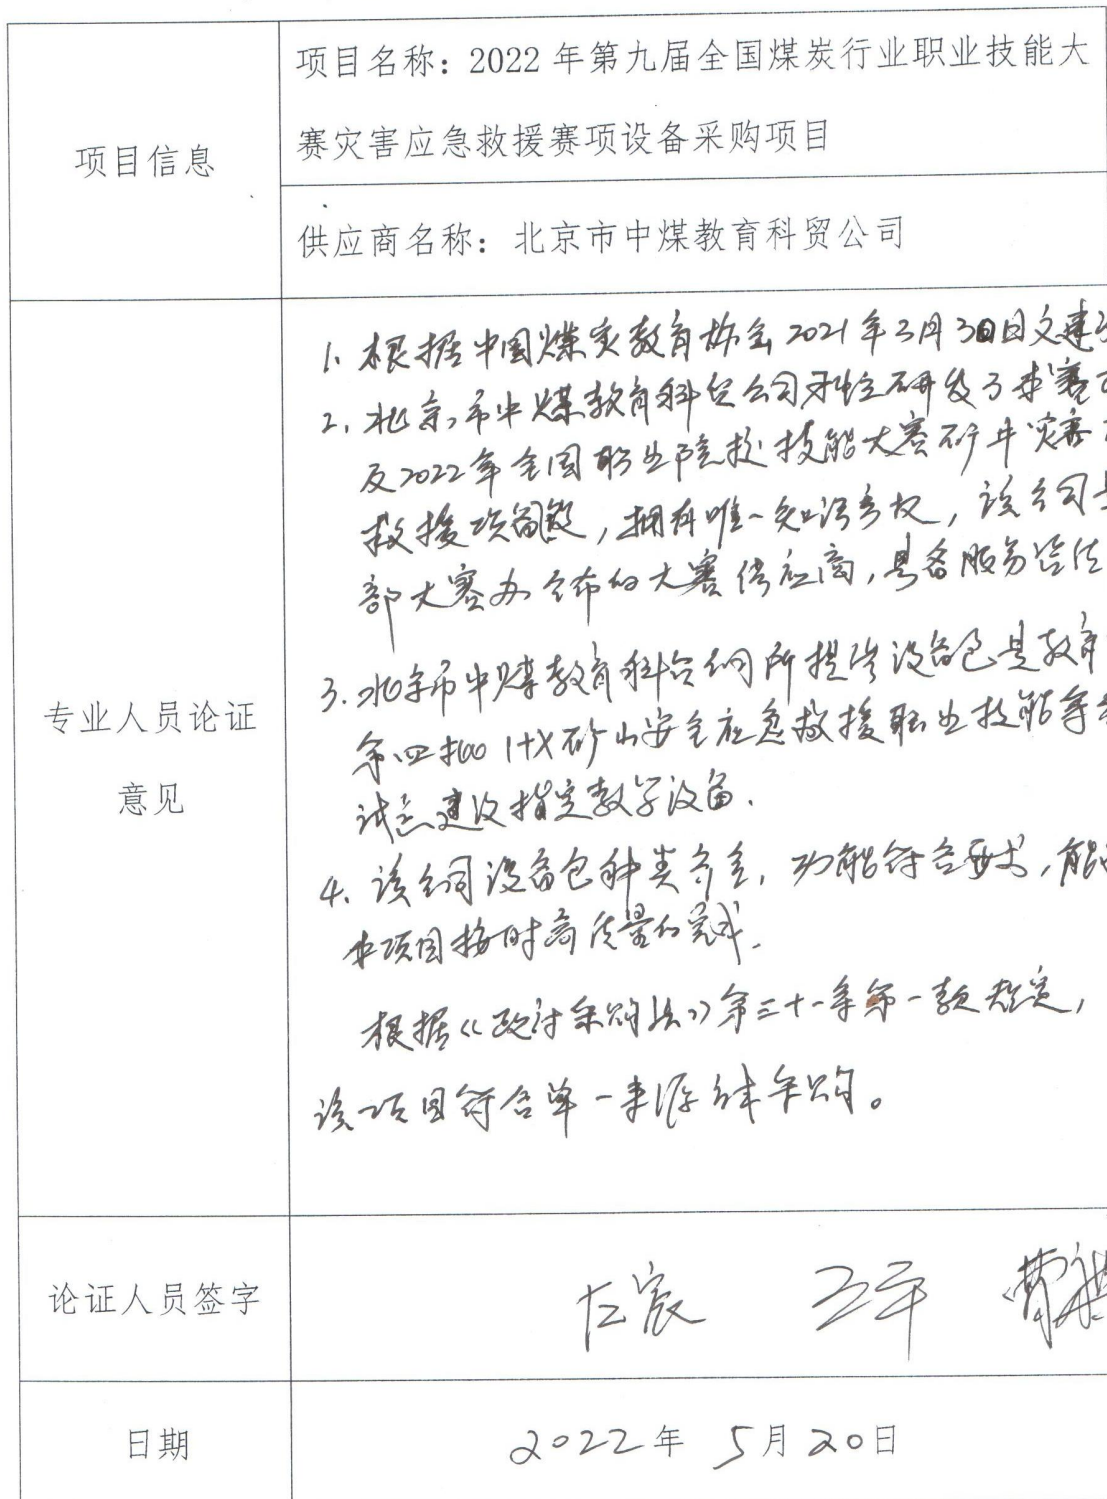 项目信息
项目名称：2022 年第九届全国煤炭行业职业技能大
赛灾害应急救援赛项设备采购项目
供应商名称：北京市中煤教育科贸公司
专业人员论证
意见
1. 根据中国煤炭教育协会2021年3月30日文建
2. 北京市中煤教育科贸公司独立研发了本赛
及2022年全国职业院校技能大赛矿井灾害
救援项目，拥有唯一知识产权，该公司
部大赛办公布的大赛供应商，具备服务
3. 北京市中煤教育科贸公司所提供设备包是教育
第四批 1+X矿山安全应急救援职业技能等
试点建设指定教学设备.
4. 该公司设备包种类齐全，功能符合要求，能
本项目按时高质量的完成.
根据《政府采购法》第三十一条第一款规定，
该项目符合单一来源 采购。
论证人员签字
日期
2022年 5月20日